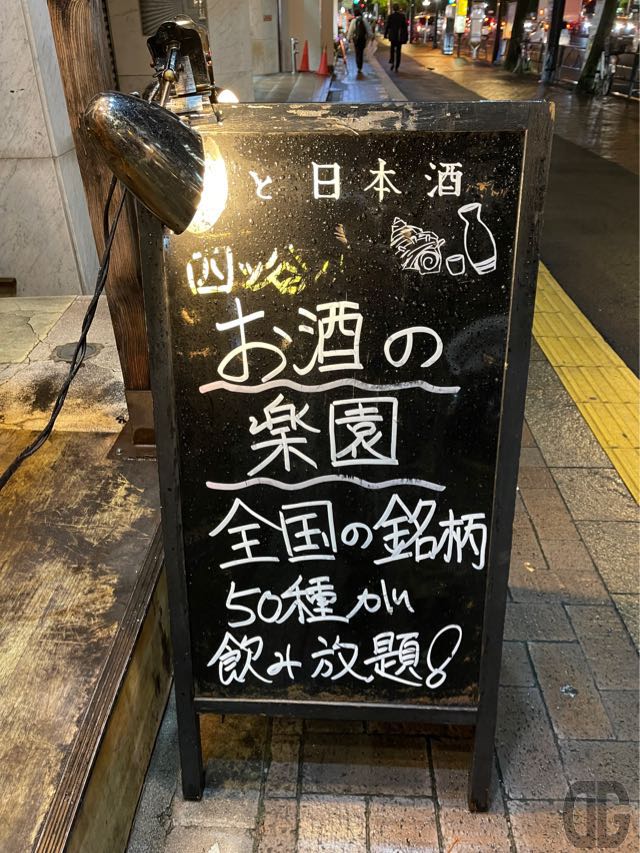 と日本酒
お酒の
楽園
全国の銘柄
50種が
飲み放題!